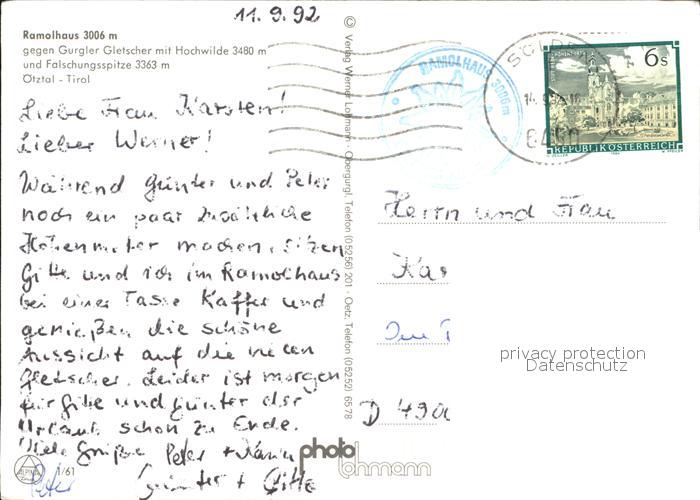 11.9.92
Ramolhaus 3006 m
gegen Gurgler Gletscher mit Hochwilde 3480 m
und Falschungsspitze 3363 m
Ötztal - Tirol
Liebe Frau Karsten!
Lieber Werner!
Während Günter und Peter
noch ein paar zusätzliche
Höhenmeter machen, sitzen
Gitte und ich im Ramolhaus
bei einer Tasse Kaffee und
genießen die schöne
Aussicht auf die vielen
Gletscher. Leider ist morgen
für Gitte und Günter der
Urlaub schon zu Ende.
Viele Grüße Peter +
Günter + Gitte
Peter
1/61
© Verlag Werner Lohmann - Obergurgl, Telefon (05256) 201 - Oetz, Telefon (05252) 6578
photo
lohmann
RAMOLHAUS 3006m
SÖLDEN
6450
6 S
REPUBLIK ÖSTERREICH
Herrn und Frau
Kar
D 490
privacy protection
Datenschutz